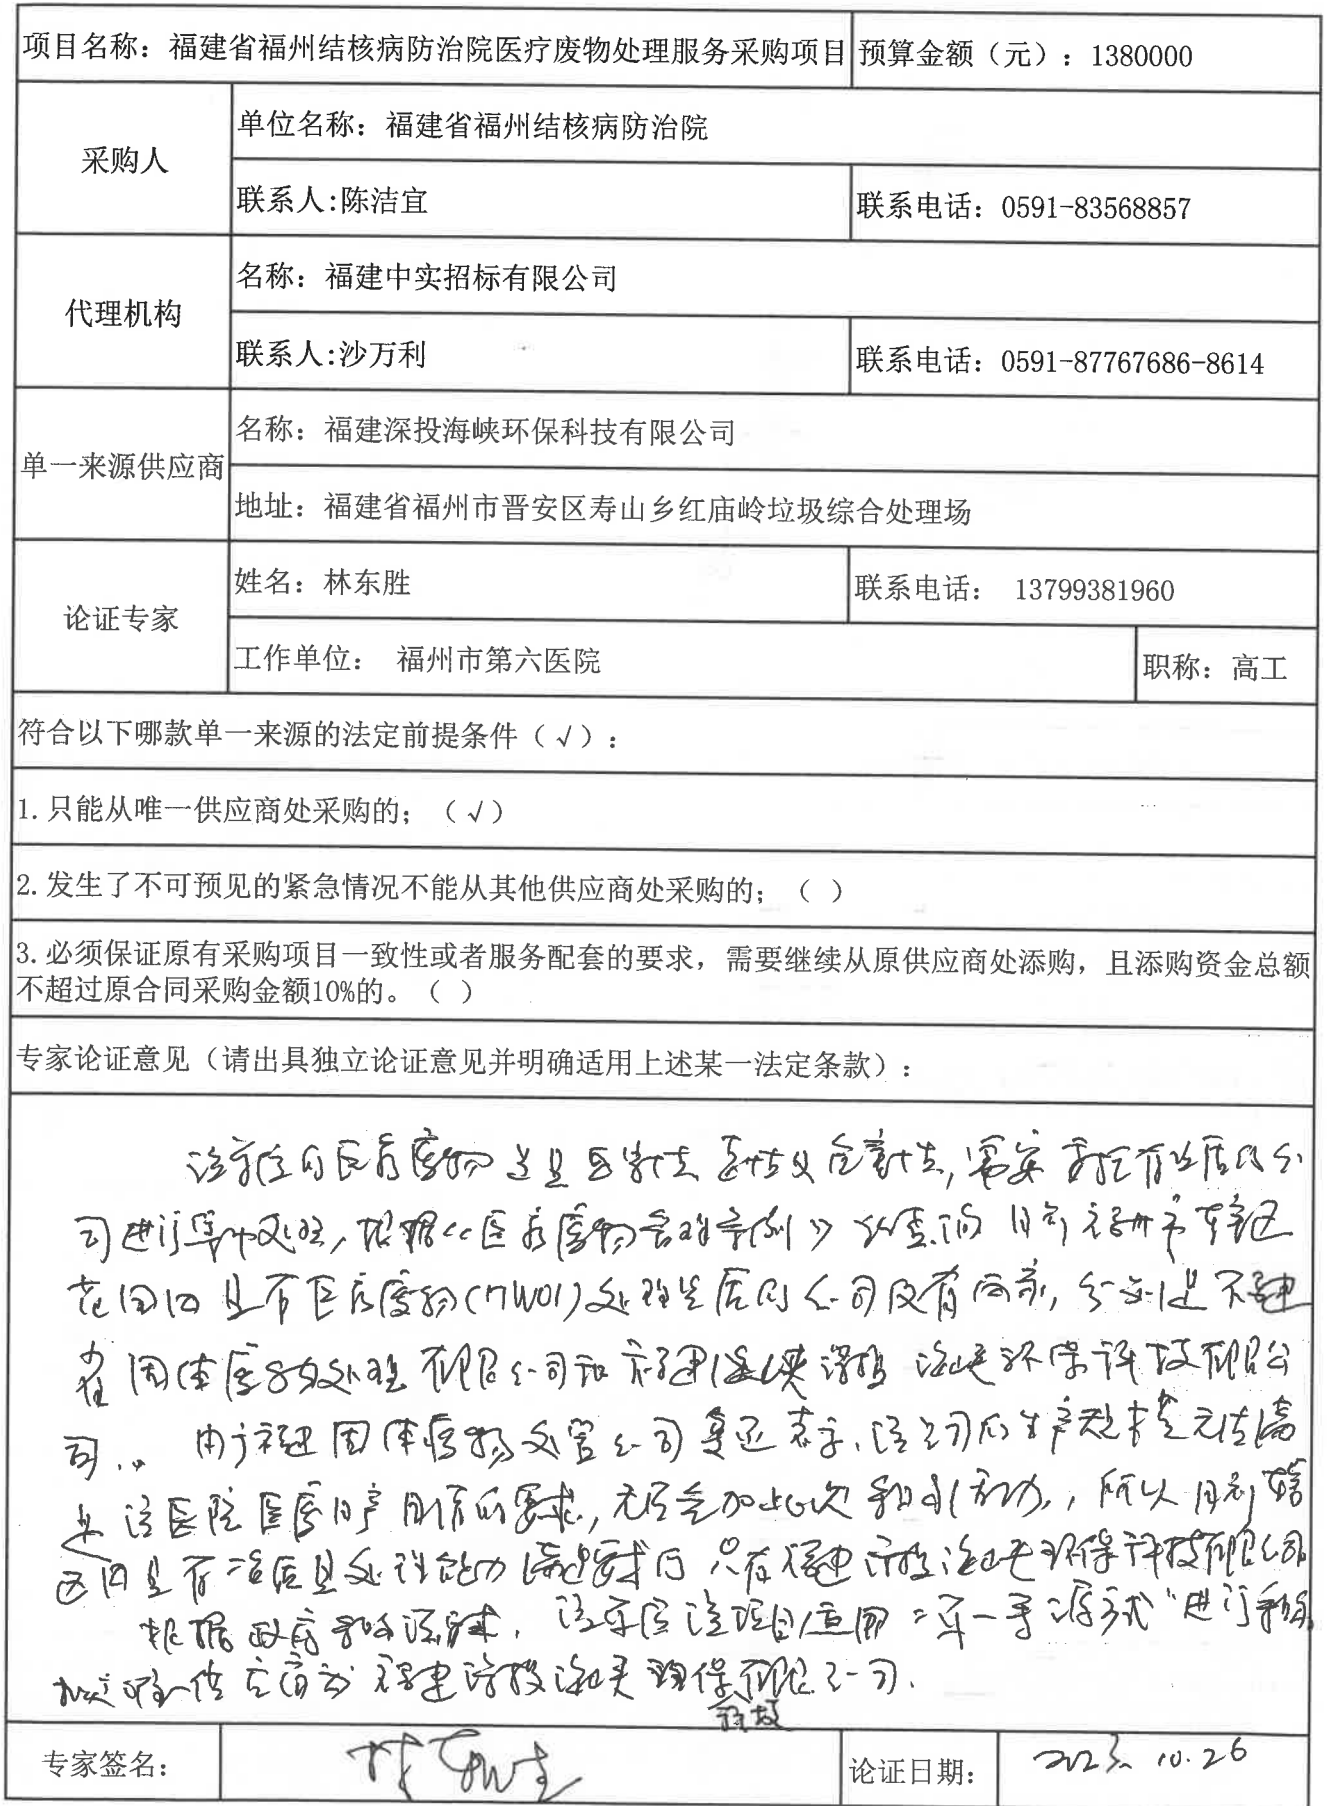 项目名称：福建省福州结核病防治院医疗废物处理服务采购项目 预算金额（元）：1380000
采购人
单位名称：福建省福州结核病防治院
联系人:陈洁宜 联系电话：0591-83568857
代理机构
名称：福建中实招标有限公司
联系人:沙万利 联系电话：0591-87767686-8614
单一来源供应商
名称：福建深投海峡环保科技有限公司
地址：福建省福州市晋安区寿山乡红庙岭垃圾综合处理场
论证专家
姓名：林东胜 联系电话： 13799381960
工作单位： 福州市第六医院 职称：高工
符合以下哪款单一来源的法定前提条件（√）：
1.只能从唯一供应商处采购的；（√）
2.发生了不可预见的紧急情况不能从其他供应商处采购的；（ ）
3.必须保证原有采购项目一致性或者服务配套的要求，需要继续从原供应商处添购，且添购资金总额
不超过原合同采购金额10%的。（ ）
专家论证意见（请出具独立论证意见并明确适用上述某一法定条款）：
该单位的医疗废物 需要 有资质的公
司进行集中处理，根据《医疗废物管理条例》 查询 目前福州市辖区
范围内具有医疗废物(HW01)处理资质的公司仅有两家，分别是福建
省固体废物处理有限公司和福建 深投海峡环保科技有限公
司。 由于福建固体废物处置公司 表示，该公司的生产规模无法满
足该医院医废日产日清的要求，无法参加此次采购活动，所以目前辖
区内具有资质且处理能力满足要求的只有福建深投海峡环保科技有限公司
根据政府采购法 ，该单位该项目适用"单一来源方式"进行采购，
供应商为福建深投海峡环保科技有限公司.
专家签名： 林东胜 论证日期： 2023.10.26